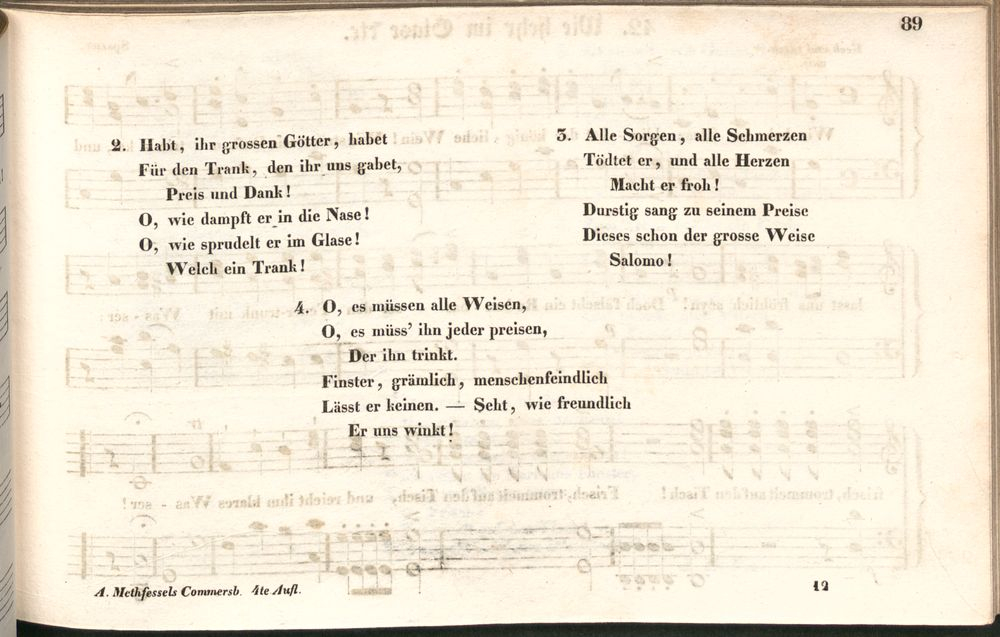 89
2. Habt, ihr grossen Götter, habet
Für den Trank, den ihr uns gabet,
Preis und Dank!
O, wie dampft er in die Nase!
O, wie sprudelt er im Glase!
Welch ein Trank!
3. Alle Sorgen, alle Schmerzen
Tödtet er, und alle Herzen
Macht er froh!
Durstig sang zu seinem Preise
Dieses schon der grosse Weise
Salomo!
4. O, es müssen alle Weisen,
O, es müss' ihn jeder preisen,
Der ihn trinkt.
Finster, grämlich, menschenfeindlich
Lässt er keinen. — Seht, wie freundlich
Er uns winkt!
A. Methfessels Commersb. 4te Aufl.
12